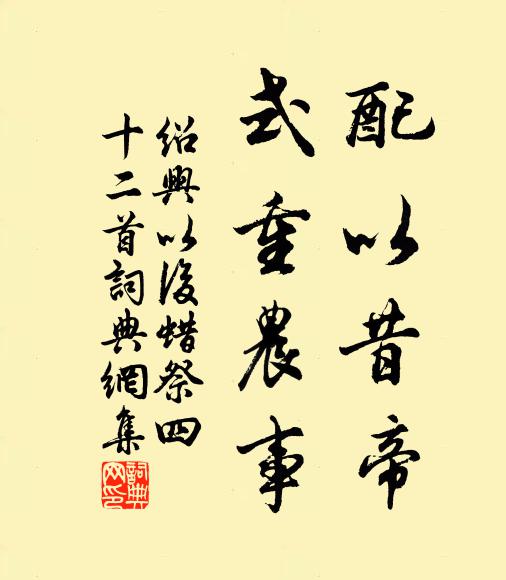 配以昔帝
式重農事
紹興以後蜡祭四
十二首詞典網集
詞典
网印